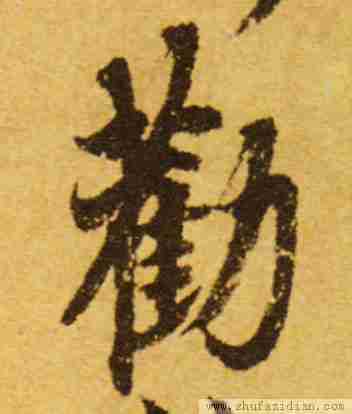 勸
www.zhufazidian.com